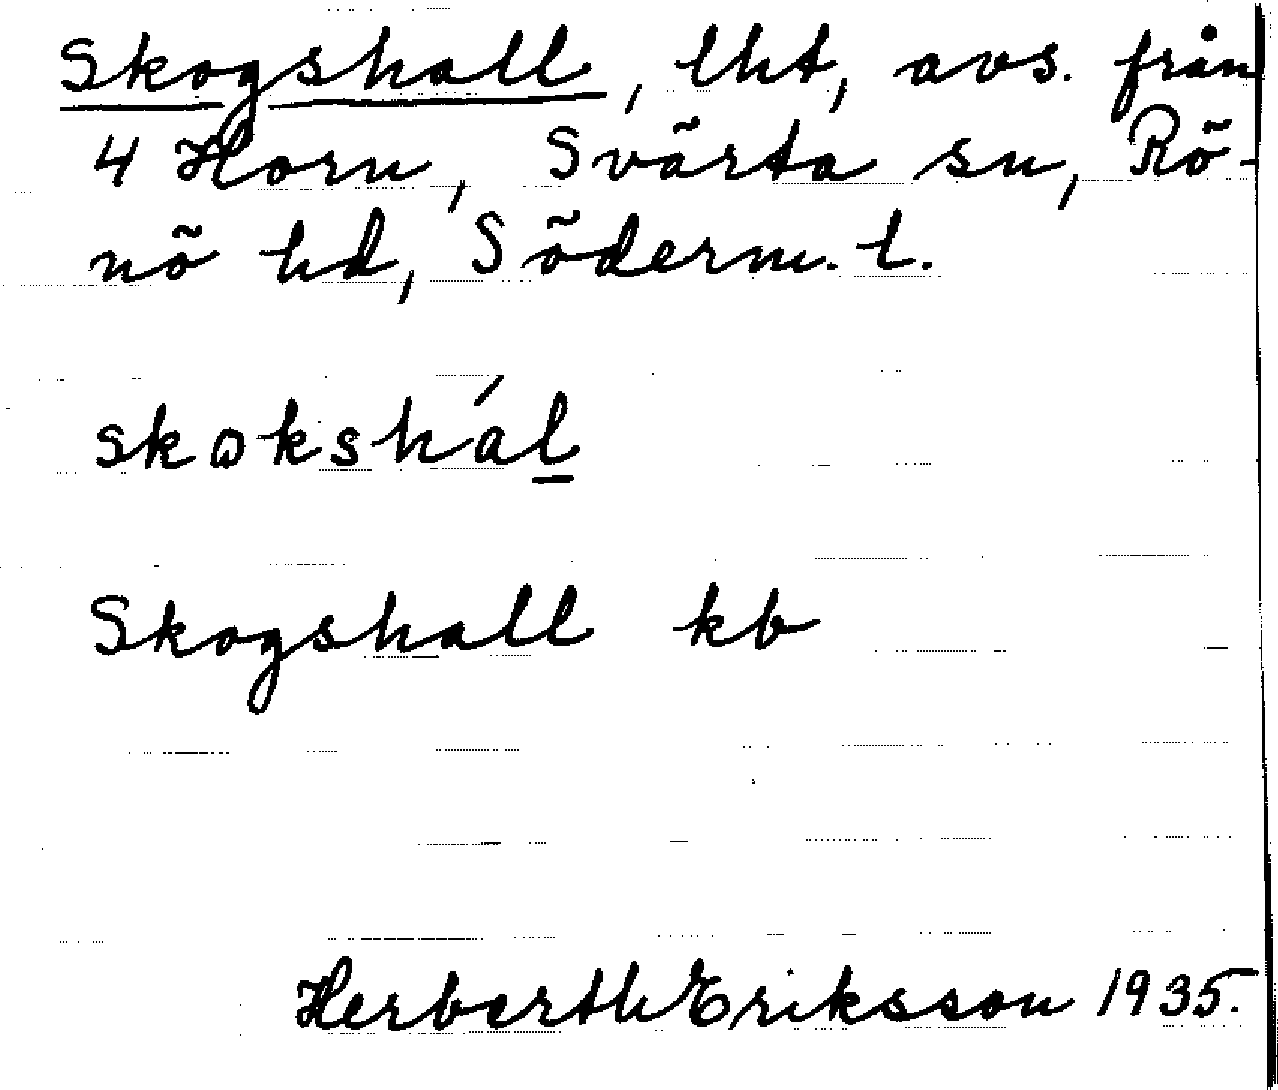 Skogshall, lht, avs. från
4 Horn, Svärta sn, Rö-
nö hd, Söderm. l.
skokshál
Skogshall kb
Herbert Eriksson 1935.